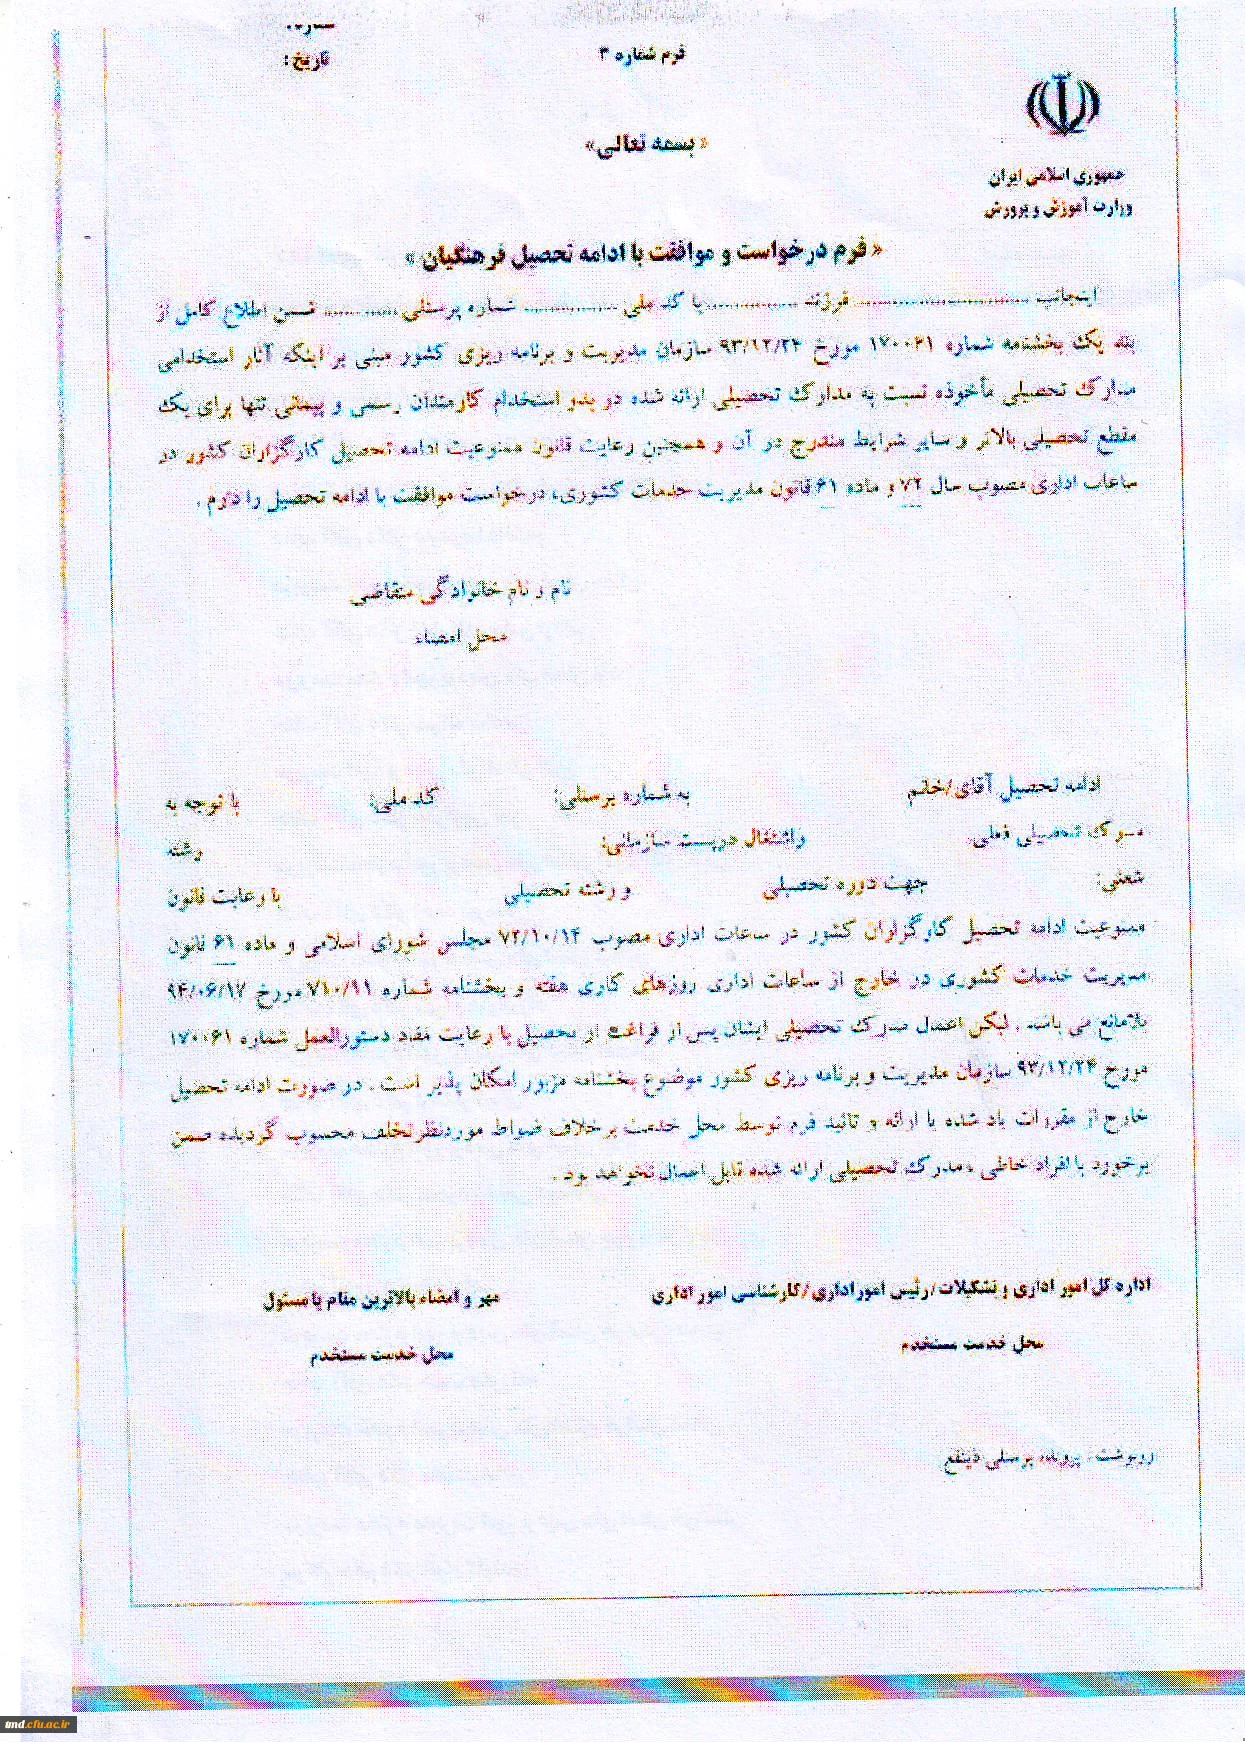 شماره:
تاریخ:
فرم شماره ۳
«بسمه تعالی»
جمهوری اسلامی ایران
وزارت آموزش و پرورش
« فرم درخواست و موافقت با ادامه تحصیل فرهنگیان »
اینجانب .............................. فرزند ................ با کد ملی ................ شماره پرسنلی ............. ضمن اطلاع کامل از
بند یک بخشنامه شماره ۱۷۰۰۶۱ مورخ ۹۳/۱۲/۲۴ سازمان مدیریت و برنامه ریزی کشور مبنی بر اینکه آثار استخدامی
مدارک تحصیلی مأخوذه نسبت به مدارک تحصیلی ارائه شده در بدو استخدام کارمندان رسمی و پیمانی تنها برای یک
مقطع تحصیلی بالاتر و سایر شرایط مندرج در آن و همچنین رعایت قانون ممنوعیت ادامه تحصیل کارگزاران کشور در
ساعات اداری مصوب سال ۷۲ و ماده ۶۱ قانون مدیریت خدمات کشوری، درخواست موافقت با ادامه تحصیل را دارم .
نام و نام خانوادگی متقاضی
محل امضاء
ادامه تحصیل آقای/خانم به شماره پرسنلی: کد ملی: با توجه به
مدرک تحصیلی فعلی واشتغال درپست سازمانی: رشته
شغلی: جهت دوره تحصیلی و رشته تحصیلی با رعایت قانون
ممنوعیت ادامه تحصیل کارگزاران کشور در ساعات اداری مصوب ۷۲/۱۰/۱۴ مجلس شورای اسلامی و ماده ۶۱ قانون
مدیریت خدمات کشوری در خارج از ساعات اداری روزهای کاری هفته و بخشنامه شماره ۷۱۰/۹۱ مورخ ۹۴/۰۶/۱۷
بلامانع می باشد . لیکن اعمال مدرک تحصیلی ایشان پس از فراغت از تحصیل با رعایت مفاد دستورالعمل شماره ۱۷۰۰۶۱
مورخ ۹۳/۱۲/۲۴ سازمان مدیریت و برنامه ریزی کشور موضوع بخشنامه مزبور امکان پذیر است . در صورت ادامه تحصیل
خارج از مقررات یاد شده با ارائه و تائید فرم توسط محل خدمت برخلاف ضوابط موردنظر تخلف محسوب گردیده ضمن
برخورد با افراد خاطی ، مدرک تحصیلی ارائه شده قابل اعمال نخواهد بود .
اداره کل امور اداری و تشکیلات/رئیس اموراداری/کارشناسی امور اداری
مهر و امضاء بالاترین مقام یا مسئول
محل خدمت مستخدم
محل خدمت مستخدم
رونوشت: پرونده پرسنلی ذینفع
tmd.cfu.ac.ir